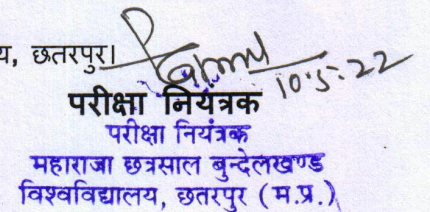 य, छतरपुर।
10.5.22
परीक्षा नियंत्रक
परीक्षा नियंत्रक
महाराजा छत्रसाल बुन्देलखण्ड
विश्वविद्यालय, छतरपुर (म.प्र.)